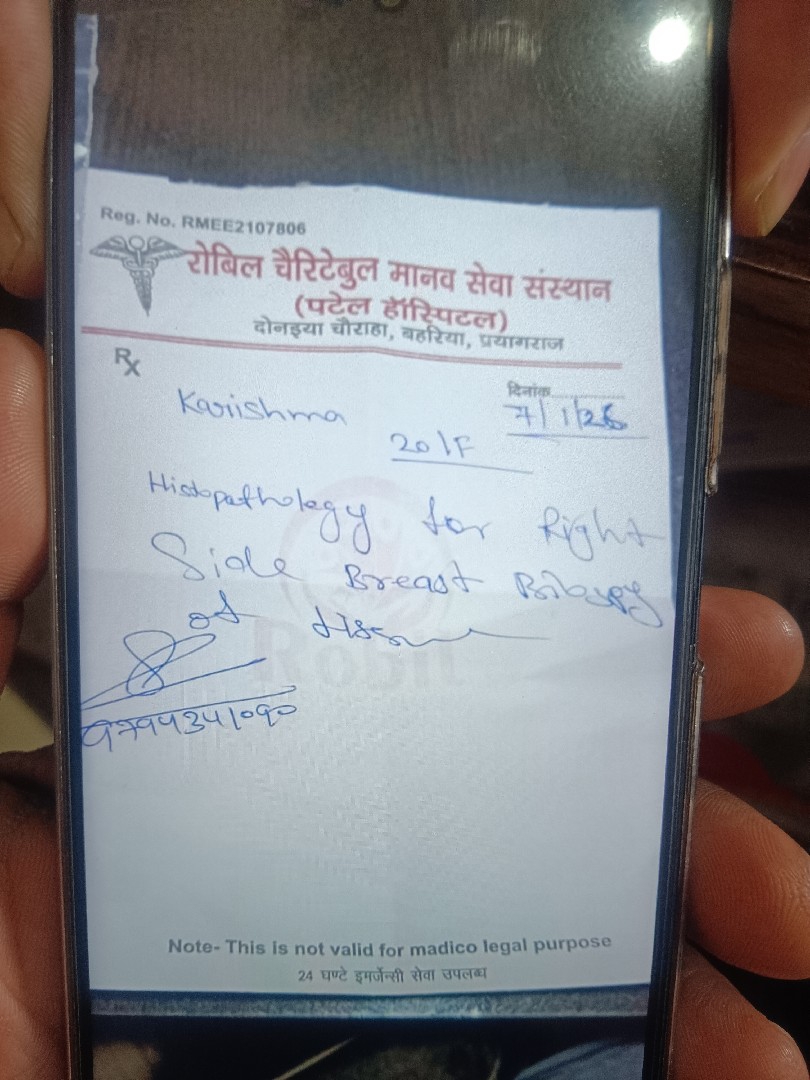 Reg. No. RMEE2107806
रोबिल चैरिटेबुल मानव सेवा संस्थान
(पटेल हॉस्पिटल)
दोनइया चौराहा, बहरिया, प्रयागराज
Rx
दिनांक
Karishma 7/1/26
20/F
Histopathology for Right
Side Breast
of tissue
Robil
Note- This is not valid for madico legal purpose
24 घण्टे इमर्जेन्सी सेवा उपलब्ध